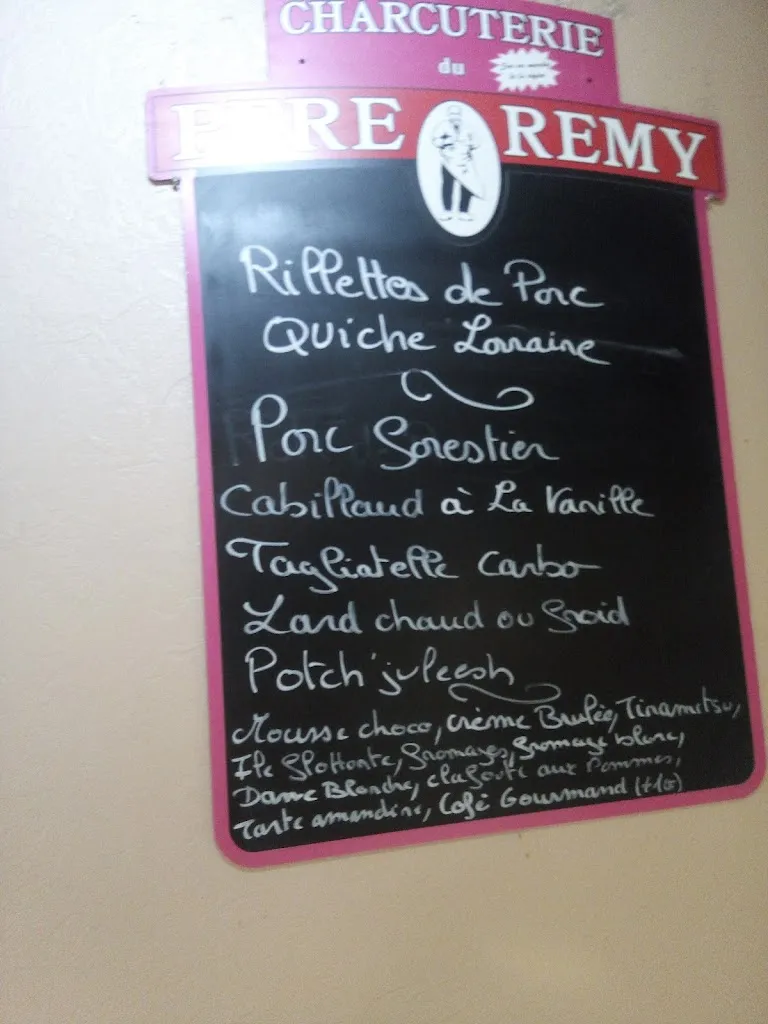 CHARCUTERIE
du
PERE REMY
Rillettes de Porc
Quiche Lorraine
Porc Forestier
Cabillaud à La Vanille
Tagliatelle Carbo
Lard chaud ou froid
Potch'juleesh
Mousse choco, Crème Brulée, Tiramisu,
Ile flottante, fromages, fromage blanc,
Dame Blanche, clafouti aux Pommes,
Tarte amandine, Café Gourmand